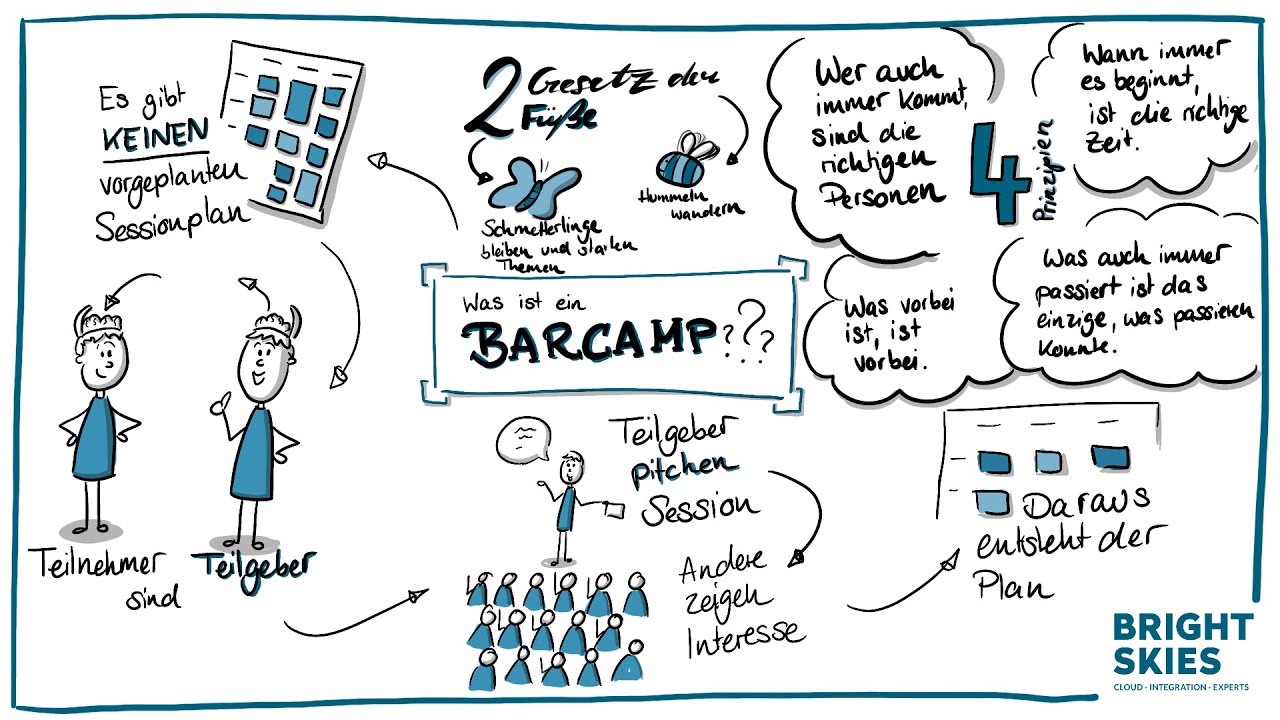 Was ist ein
BARCAMP???
Es gibt
KEINEN
vorgeplanten
Sessionplan
Teilnehmer
sind
Teilgeber
Teilgeber
pitchen
Session
Andere
zeigen
Interesse
Daraus
entsteht der
Plan
2 Gesetz der
Füße
Schmetterlinge
bleiben und starten
Themen
Hummeln
wandern
4 Prinzipien
Wer auch
immer kommt,
sind die
richtigen
Personen
Wann immer
es beginnt,
ist die richtige
Zeit.
Was vorbei
ist, ist
vorbei.
Was auch immer
passiert ist das
einzige, was passieren
konnte.
BRIGHT
SKIES
CLOUD · INTEGRATION · EXPERTS